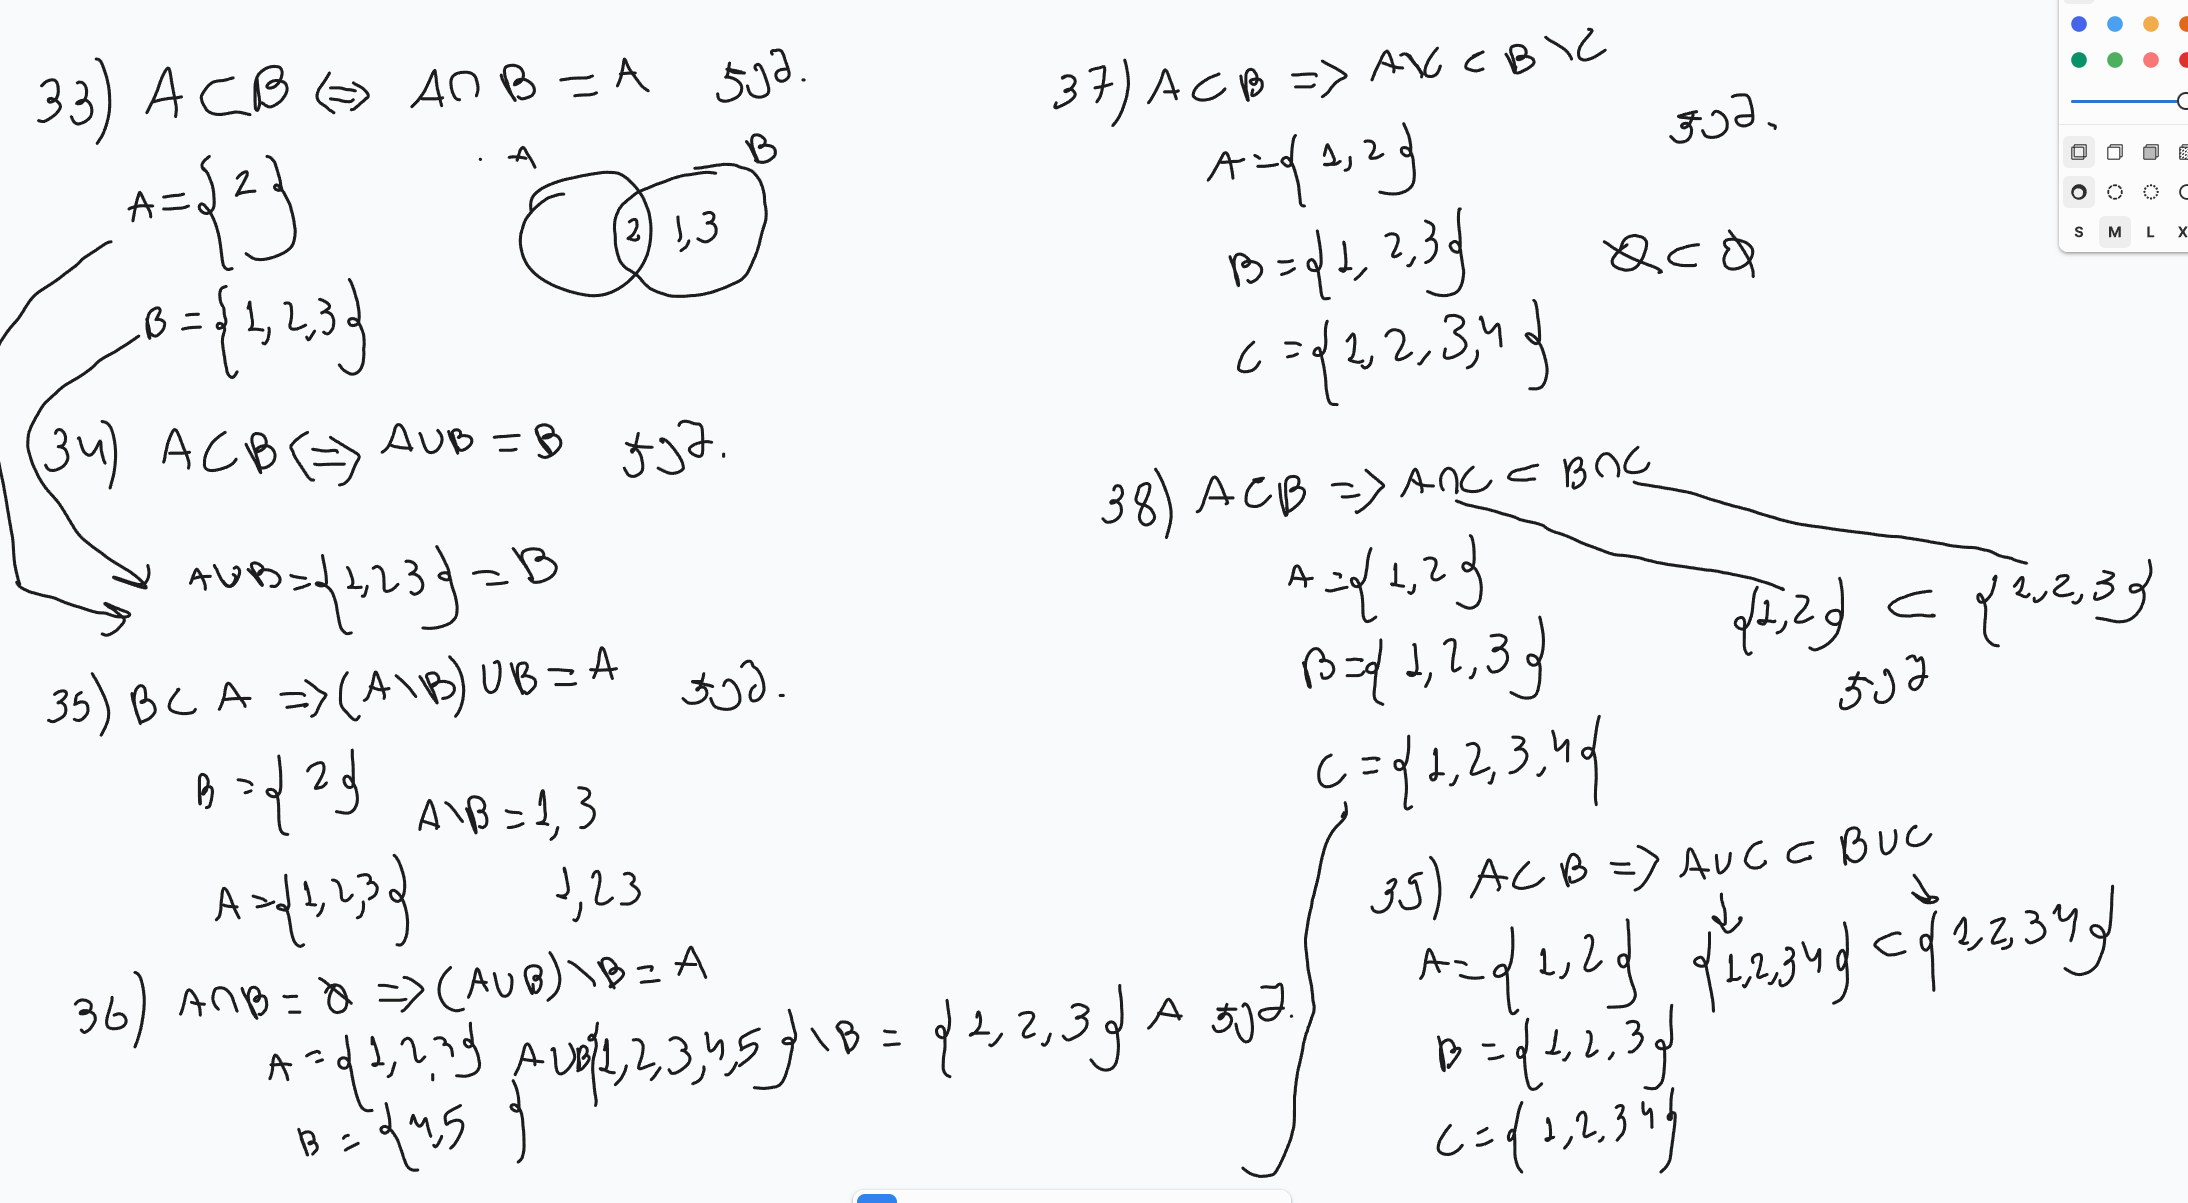 33) A ⊂ B ⇔ A ∩ B = A
A = {2}
A B
2 1,3
B = {1,2,3}
34) A ⊂ B ⇔ A ∪ B = B
A ∪ B = {1,2 3} = B
35) B ⊂ A => (A \ B) ∪ B = A
B = {2}
A \ B = 1, 3
A = {1,2,3}
1,2 3
36) A ∩ B = ∅ => (A ∪ B) \ B = A
A = {1,2,3} A ∪ B {1,2,3,4,5} \ B = {1,2,3} A
B = {4,5}
37) A ⊂ B => A \ C ⊂ B \ C
A = {1,2}
B = {1,2,3} ∅ ⊂ ∅
C = {1,2,3,4}
38) A ⊂ B => A ∩ C ⊂ B ∩ C
A = {1,2}
{1,2} ⊂ {1,2,3}
B = {1,2,3}
C = {1,2,3,4}
39) A ⊂ B => A ∪ C ⊂ B ∪ C
A = {1,2} {1,2,3 4} ⊂ {1,2,3 4}
B = {1,2,3}
C = {1,2,3 4}
S M L X